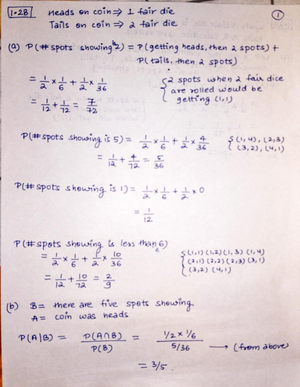 1.28 Heads on coin ⇒ 1 fair die ①
Tails on coin ⇒ 2 fair die
(a) P(# spots showing 2) = P(getting heads, then 2 spots) +
P(tails, then 2 spots)
= 1/2 × 1/6 + 1/2 × 1/36 { 2 spots when 2 fair dice
are rolled would be
= 1/12 + 1/72 = 7/72 getting (1,1)
P(# spots showing is 5) = 1/2 × 1/6 + 1/2 × 4/36 { (1,4), (2,3)
(3,2), (4,1)
= 1/12 + 4/72 = 5/36
P(# spots showing is 1) = 1/2 × 1/6 + 1/2 × 0
= 1/12
P(# spots showing is less than 6)
= 1/2 × 5/6 + 1/2 × 10/36 { (1,1) (1,2) (1,3) (1,4)
(2,1) (2,2) (2,3) (3,1)
(3,2) (4,1)
(b) B = there are five spots showing.
A = coin was heads
P(A|B) = P(A∩B) / P(B) = 1/2 × 1/6 / 5/36 → (from above)
= 3/5